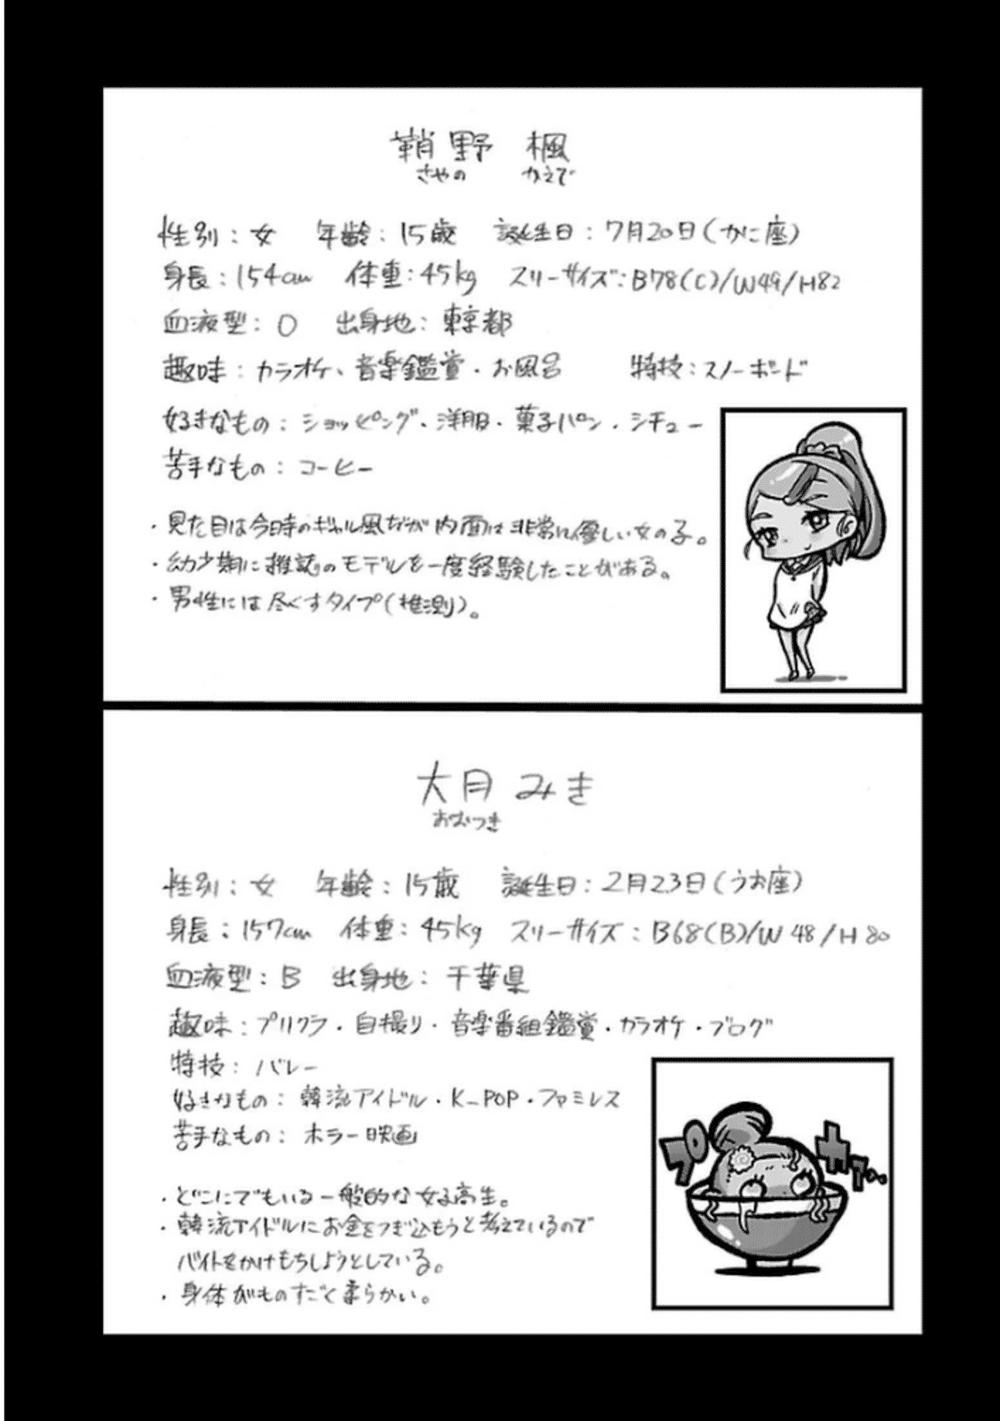 鞘野 楓
さやの かえで
性別：女 年齢：15歳 誕生日：7月20日(かに座)
身長：154cm 体重：45kg スリーサイズ：B78(C)/W49/H82
血液型：O 出身地：東京都
趣味：カラオケ、音楽鑑賞・お風呂 特技：スノーボード
好きなもの：ショッピング・洋服・菓子パン・シチュー
苦手なもの：コーヒー
・見た目は今時のギャル風だが内面は非常に優しい女の子。
・幼少期に雑誌のモデルを一度経験したことがある。
・男性には尽くすタイプ(推測)。
大月 みき
おおつき
性別：女 年齢：15歳 誕生日：2月23日(うお座)
身長：157cm 体重：45kg スリーサイズ：B68(B)/W48/H80
血液型：B 出身地：千葉県
趣味：プリクラ・自撮り・音楽番組鑑賞・カラオケ・ブログ
特技：バレー
好きなもの：韓流アイドル・K-POP・ファミレス
苦手なもの：ホラー映画
プカァ…
・どこにでもいる一般的な女子高生。
・韓流アイドルにお金をつぎ込もうと考えているので
バイトをかけもちしようとしている。
・身体がものすごく柔らかい。